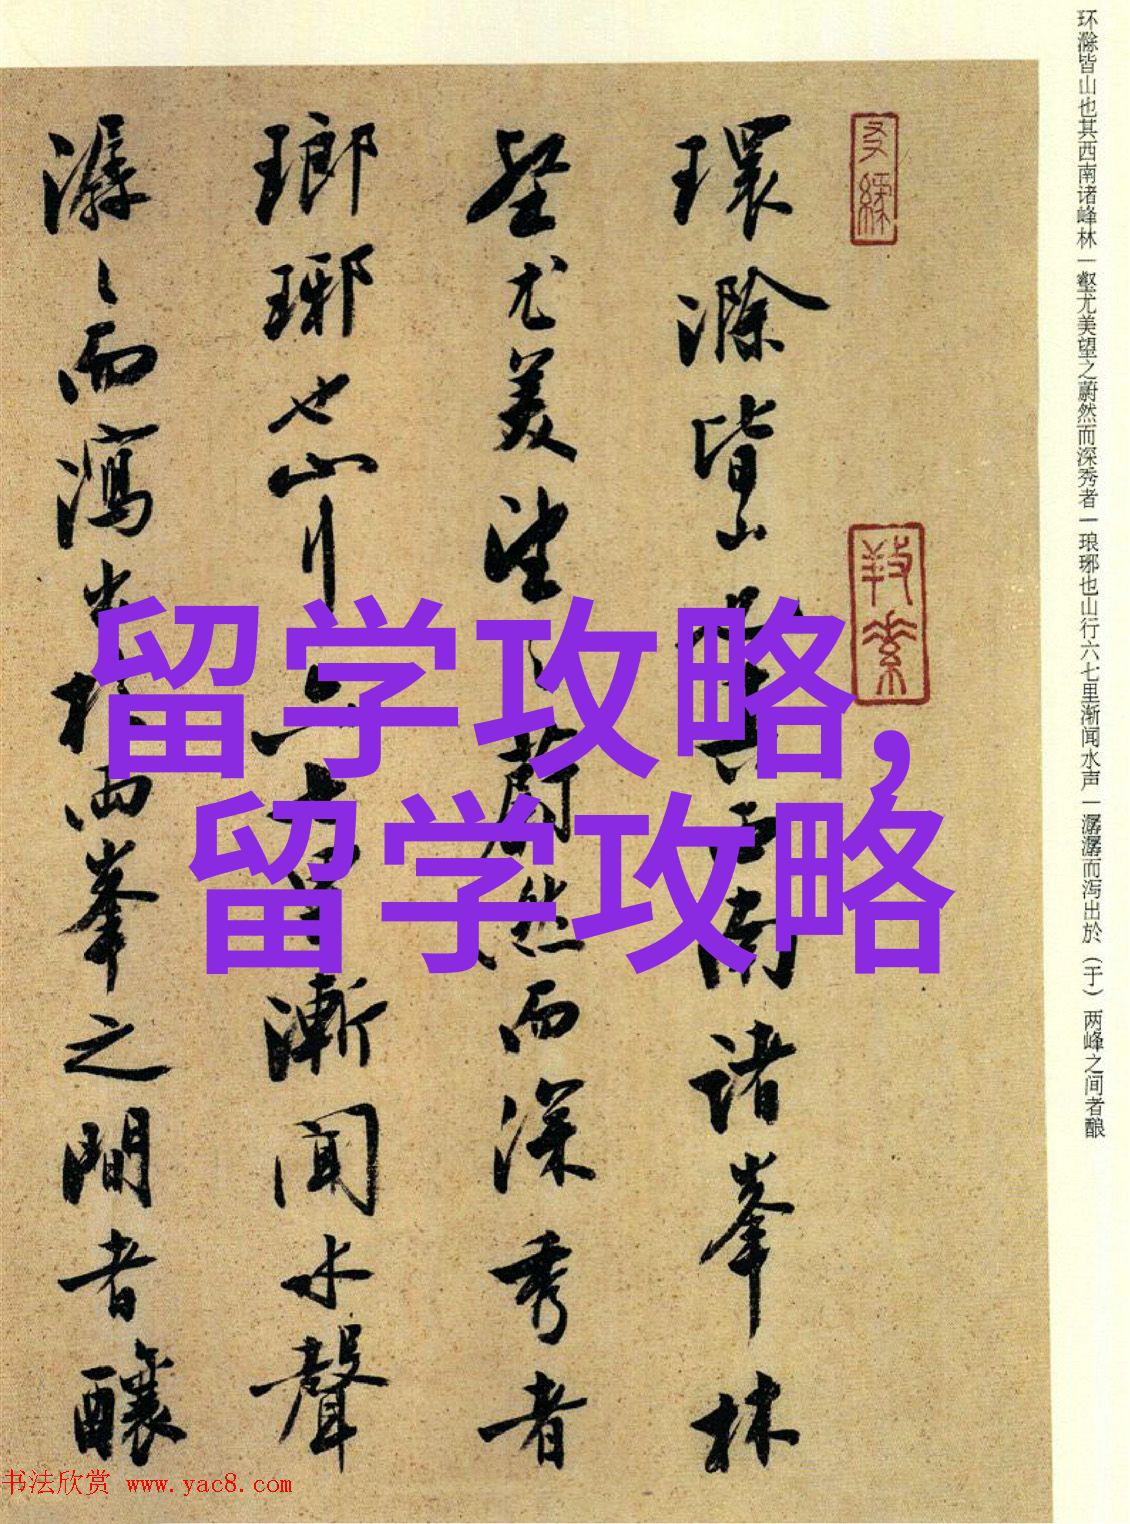 环滁皆山也其西南诸峰林一壑尤美望之蔚然而深秀者一琅琊也山行六七里渐闻水声一潺潺而泻出於（于）两峰之间者酿
環滁皆山
諸峯林
壑尤美望
蔚然而深秀者
瑯琊也山行
漸聞水聲
潺〻而瀉出於兩峯之間者釀
留学攻略，
留学攻略
书法欣赏 www.yac8.com